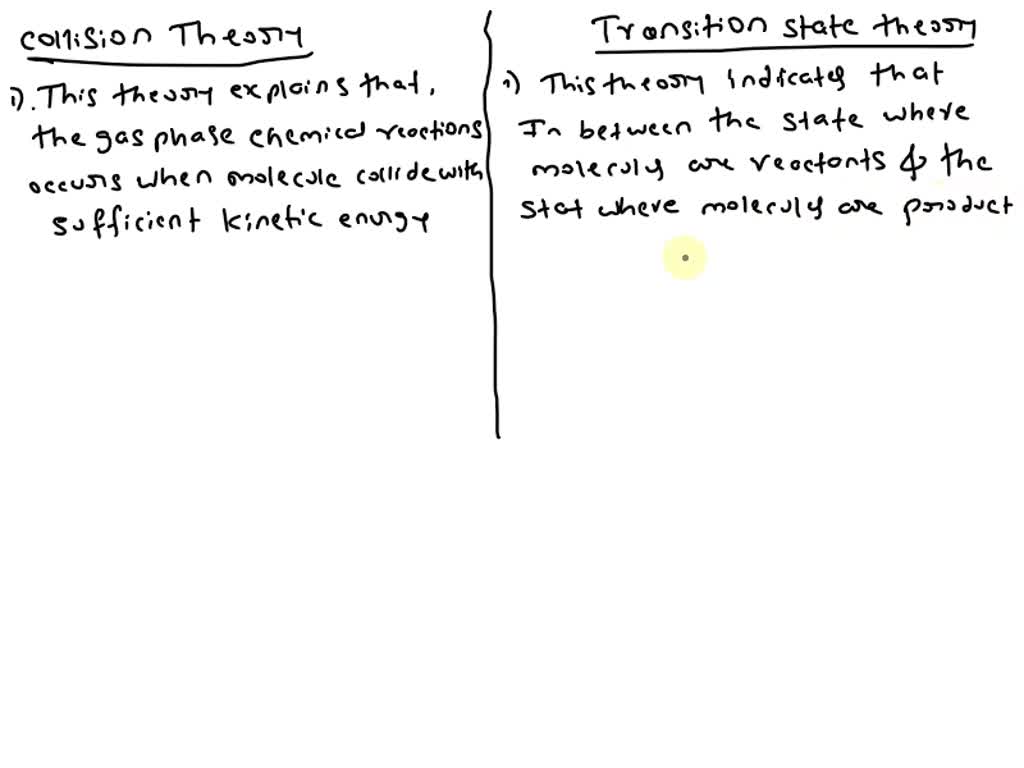 Collision Theory
1). This theory explains that,
the gas phase chemical reactions
occurs when molecule collide with
sufficient kinetic energy
Transition state theory
1) This theory indicates that
In between the state where
molecules are reactants & the
stat where molecules are product